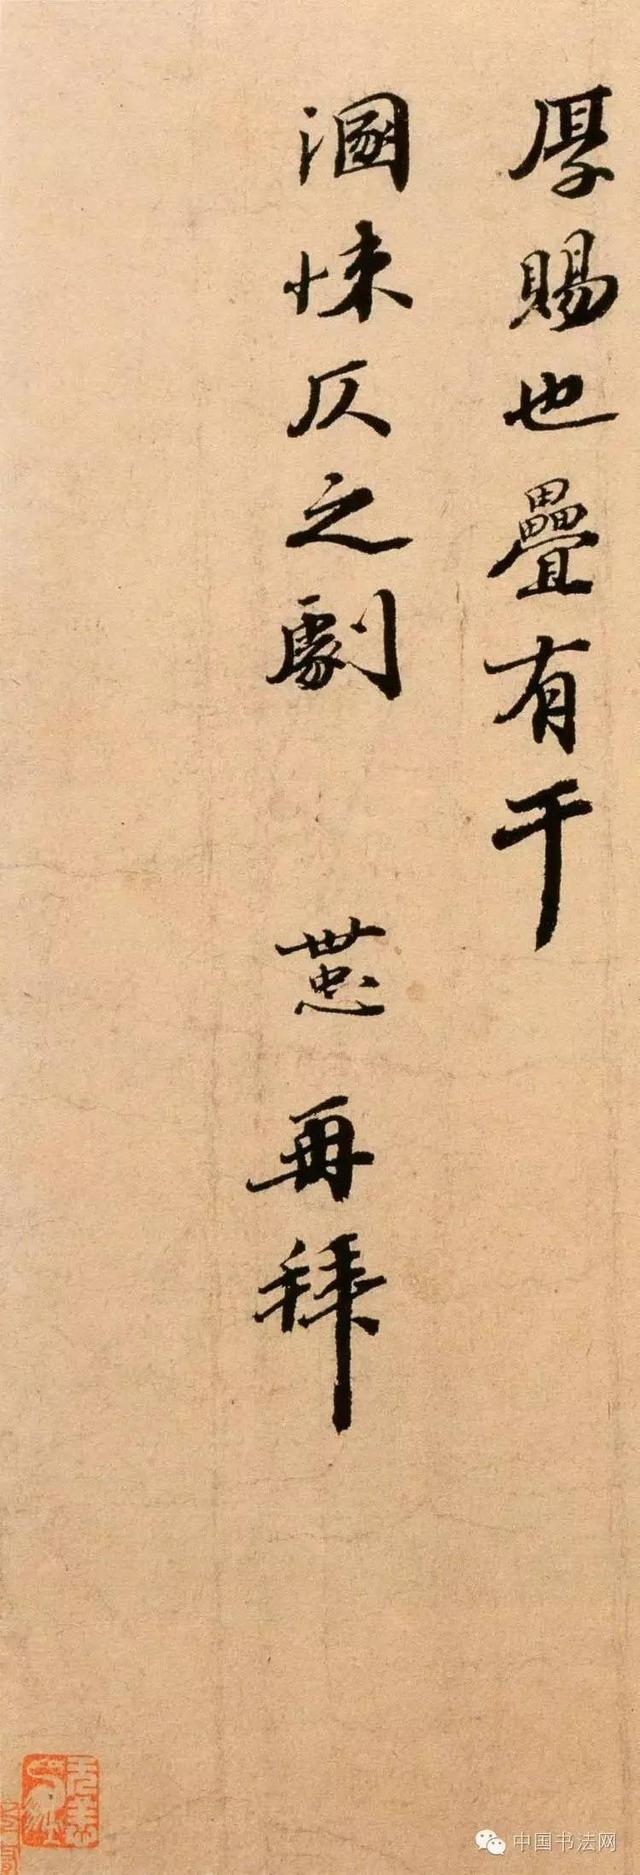 厚賜也疊有干
溷悚仄之劇 再拜
中国书法网